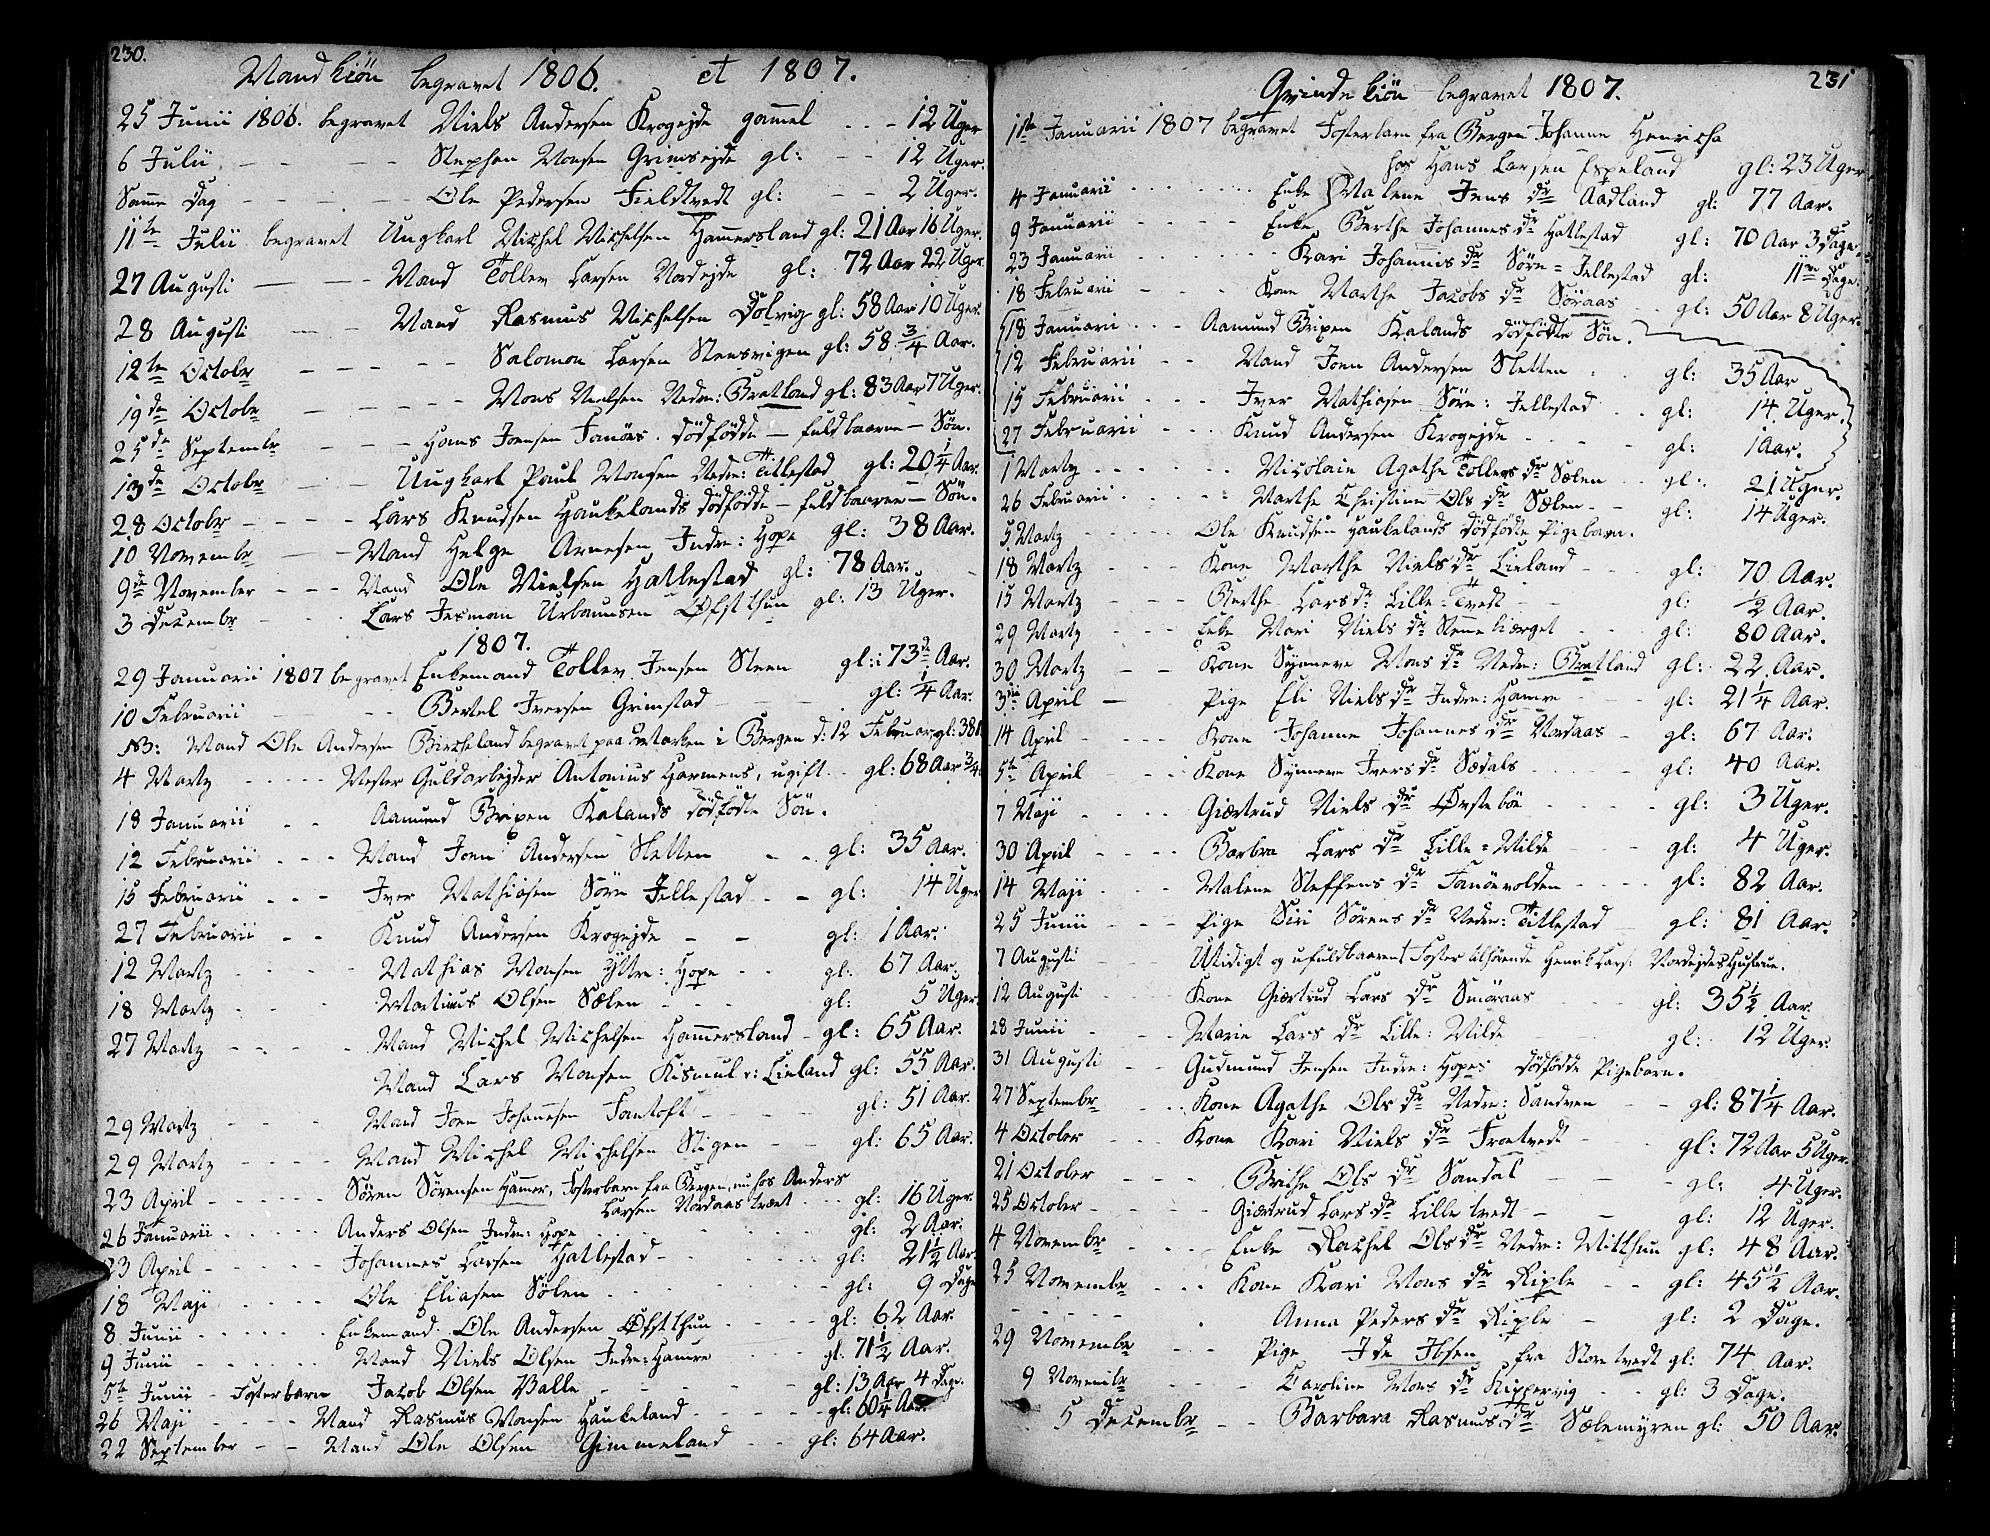 230.
Mandkiön begravet 1806. et 1807.
25 Junii 1806. begravet Niels Andersen Krogejde gammel - - - 12 Uger
6 Julii - - - - Stephen Monsen Grimsejde gl: - - 12 Uger.
Samme Dag - - - - - Ole Pedersen Fieldtvedt gl: - - 2 Uger.
11te Julii begravet Ungkarl Michel Michelsen Hammersland gl: 21 Aar 16 Uger.
27 Augusti - - - Mand Tollev Larsen Nordejde gl: 72 Aar 22 Uger.
28 Augusti - - Mand Rasmus Michelsen Dolvig gl: 58 Aar 10 Uger.
12te Octobr - - - - - Salomon Larsen Steensvigen gl: 58 3/4 Aar.
19de Octobr - - - - - - Mons Nielsen Nedre: Bratland gl: 83 Aar 7 Uger.
25de Septembr - - - - Hans Joensen Fanöes. dödfödde - fuldbaarne - Sön.
13de Octobr - - - Ungkarl Paul Monsen Nedre: Titlestad gl: 20 1/4 Aar.
28 Octobr - - - - Lars Knudsen Haukelands dödfödde - fuldbaarne - Sön.
10 Novembr - - - Mand Helge Arnesen Indre: Hope gl: 38 Aar.
9de November - - - Mand Ole Nielsen Hatlestad gl: 78 Aar.
3 Decembr - - - - Lars Jesman Urbanusen Øfstthun gl: 13 Uger.
1807.
29 Januarii 1807 begravet Enkemand Tollev Jensen Steen gl: 73 Aar.
10 Februarii - - - - Bertel Iversen Grimstad - - - gl: 1/4 Aar.
NB: Mand Ole Andersen Birkeland begravet paa Marken i Bergen d: 12 Februar gl: 38
4 Martz - - - - - Mester Guldarbejder Antonius Harmens, ugift. gl: 68 Aar 3/4
18 Januarii - - Aamund Bripen Kalands dödfödte Sön.
12 Februarii - - - Mand Joen Andersen Sletten - - gl: 35 Aar.
15 Februarii - - - Iver Mathiasen Sörn Jellestad - - gl: 14 Uger
27 Februarii - - Knud Andersen Krogejde - - gl: 1 Aar.
12 Martz - - - - Mathias Monsen Yttre: Hope - - gl: 67 Aar.
18 Martz - - Martinus Olsen Sælen - - - gl: 5 Uger
27 Martz - - - - Mand Michel Michelsen Hammersland - gl: 65 Aar.
Mand Lars Monsen Kismul v: Lieland gl: 55 Aar.
29 Martz - - - - Mand Joen Johannesen Fantoft - - - gl: 51 Aar.
29 Martz - - - - Mand Michel Michelsen Stigen - - gl: 65 Aar.
23 April - - - - - Sören Sörensen Hamer, Fosterbarn fra Bergen, nu hos Anders
Larsen Nordaastræet - - - gl: 16 Uger.
26 Januarii - - - - Anders Olsen Indre: Hope - - - gl: 2 Aar.
23 April - - - - - Johannes Larsen Hatlestad - - - gl: 21 1/2 Aar.
18 Maji - - - - - Ole Eliasen Sölen - - - - gl: 9 Dage
8 Junii - - - - - - Enkemand Ole Andersen Øfstthun - - - - gl: 62 Aar.
9 Junii - - - - - - Mand Niels Olsen Indre: Hamre - - - gl: 71 1/2 Aar.
5te Junii - Fosterbarn Jacob Olsen Balle - - - - - gl: 13 Aar 4 Dage.
26 Maji - - - - Mand Rasmus Monsen Haukeland - - - - - gl: 60 1/4 Aar.
22 September - - Mand Ole Olsen Gimmeland - - gl: 64 Aar.
231
Qvindekiön begravet 1807.
1ste Januarii 1807 begravet Fosterbarn fra Bergen Johanne Henricha
hos Hans Larsen Espeland gl: 23 Uger
4 Januarii - - - - - - Enke Malene Jens dr Aadland gl: 77 Aar.
9 Januarii - - - - - Enke Berthe Johannes dr Hatlestad gl: 70 Aar 3 Dage.
23 Januarii - - - - - - Kari Johannis dr Sörn = Jellestad gl: 11 Dage.
18 Februarii - - - - Kone Marthe Jacobs dr Söraas - - gl: 50 Aar 8 Uger.
18 Januarii - - - Aamund Bripen Kalands dödfödte Sön.
12 Februarii - - Mand Joen Andersen Sletten - - gl: 35 Aar
15 Februarii - - - Iver Mathiasen Sörn: Jellestad - - gl: 14 Uger.
27 Februarii - - - Knud Andersen Krogejde - - - - gl: 1 Aar.
1 Martz - - - - - - Nicolaie Agathe Tollevs dr Sælen - - gl: 21 Uger.
26 Februarii - - - - - Marthe Christine Ols dr Sælen - - gl: 14 Uger.
5 Martz - - - - - Ole Knudsen Haukelands dödfödte Pigebarn.
18 Martz - - - Kone Marthe Niels dr Lieland - - - gl: 70 Aar.
15 Martz - - - - Berthe Lars dr Lille = Tvedt - - gl: 1/2 Aar.
29 Martz - - - - Enke Mari Niels dr Stenekiærget - - - gl: 80 Aar.
30 Martz - - Kone Synneve Mons dr Nedre: Bratland gl: 22 Aar.
3die April - Pige Eli Niels dr Indre: Hamre - - gl: 21 1/4 Aar.
14 April - - - - Kone Johanne Johannes dr Nordaas - gl: 67 Aar.
5te April - - - - Kone Synneve Ivers dr Sædals - - - - - gl: 40 Aar.
7 Maji - - - - Giærtrud Niels dr Øvstebön - - - - - gl: 3 Uger.
30 April - - - - Barbra Lars dr Lille = Milde - - - gl: 4 Uger.
14 Maji - - - - Malene Steffens dr Fanöevolden - - - - gl: 82 Aar.
25 Junii - - - - Pige Siri Sörens dr Nedre: Titlestad - - gl: 81 Aar.
7 Augusti - - - Utidigt og ufuldbaarent Foster tilhörende Henrik Lars: Nordejdes Hustrue.
12 Augusti - - - Kone Giærtrud Lars dr Smöraas - - - gl: 35 1/2 Aar.
28 Junii - - - Marie Lars dr Lille: Milde - - - gl: 12 Uger.
31 Augusti - - Gudmund Jensen Indre: Hopes dödfödde Pigebarn.
27 Septembr - - - Kone Agathe Ols dr Nedre: Sandven - - gl: 87 1/4 Aar.
4 October - - - Kone Kari Niels dr Troetvedt - - gl: 72 Aar 5 Uger.
21 October - - - - Brithe Ols dr Sandal - - - gl: 4 Uger.
25 October - - - - - Giærtrud Lars dr Lilletvedt - - gl: 12 Uger.
4 Novembr - - - - Enke Rachel Ols dr Nedre: Mitthun gl: 48 Aar.
25 Novembr - - - Kone Kari Mons dr Riple - - gl: 45 1/2 Aar.
- - - - - - Anna Peders dr Riple - - gl: 2 Dage.
29 Novembr - - - Pige Ide Ibsen fra Storetvedt gl: 74 Aar.
9 Novembr - - - Caroline Mons dr Kippervig - - gl: 3 Dage.
5 Decembr - - Barbara Rasmus dr Sælemyren gl: 50 Aar.